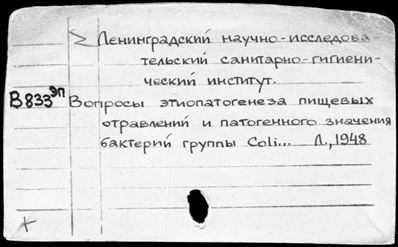 Ленинградский научно-исследова
тельский санитарно-гигиени-
ческий институт.
В833 эп Вопросы этиопатогенеза пищевых
отравлений и патогенного значения
бактерий группы Coli... Л., 1948